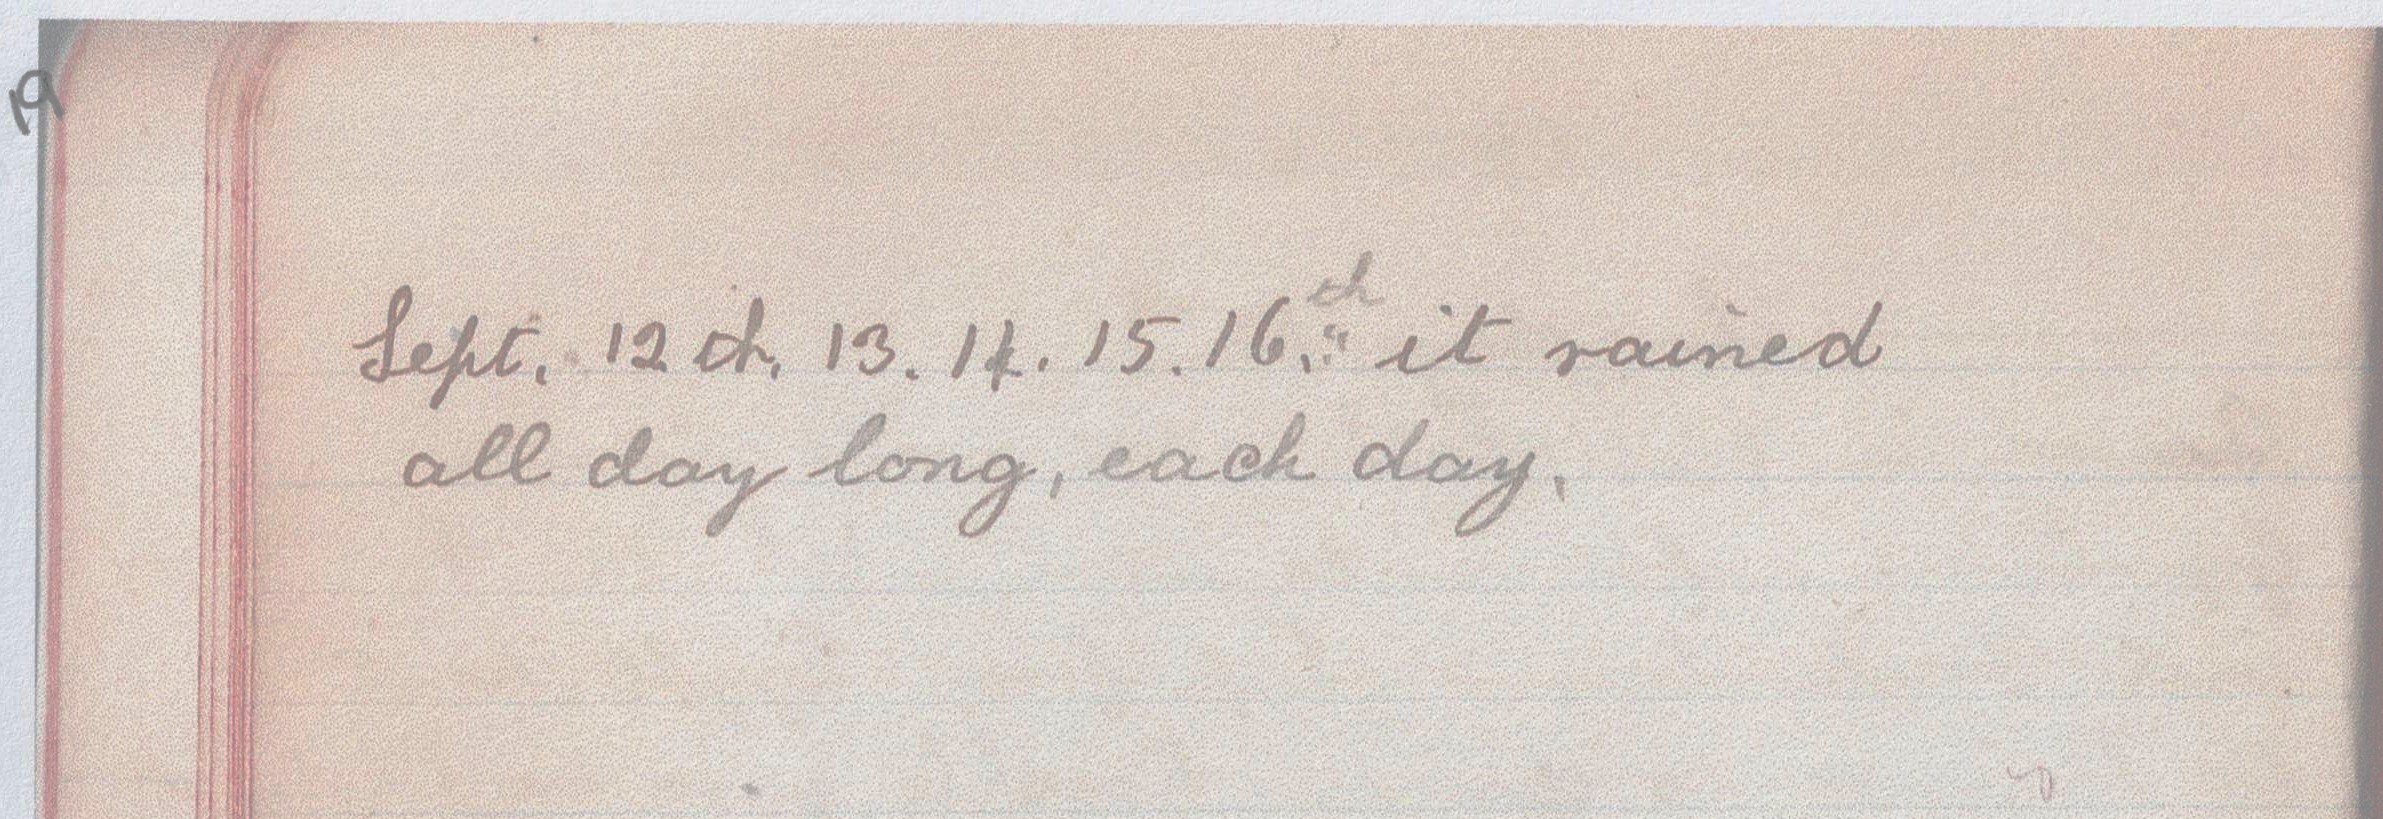 19
Sept. 12th. 13. 14. 15. 16.th it rained
all day long, each day.